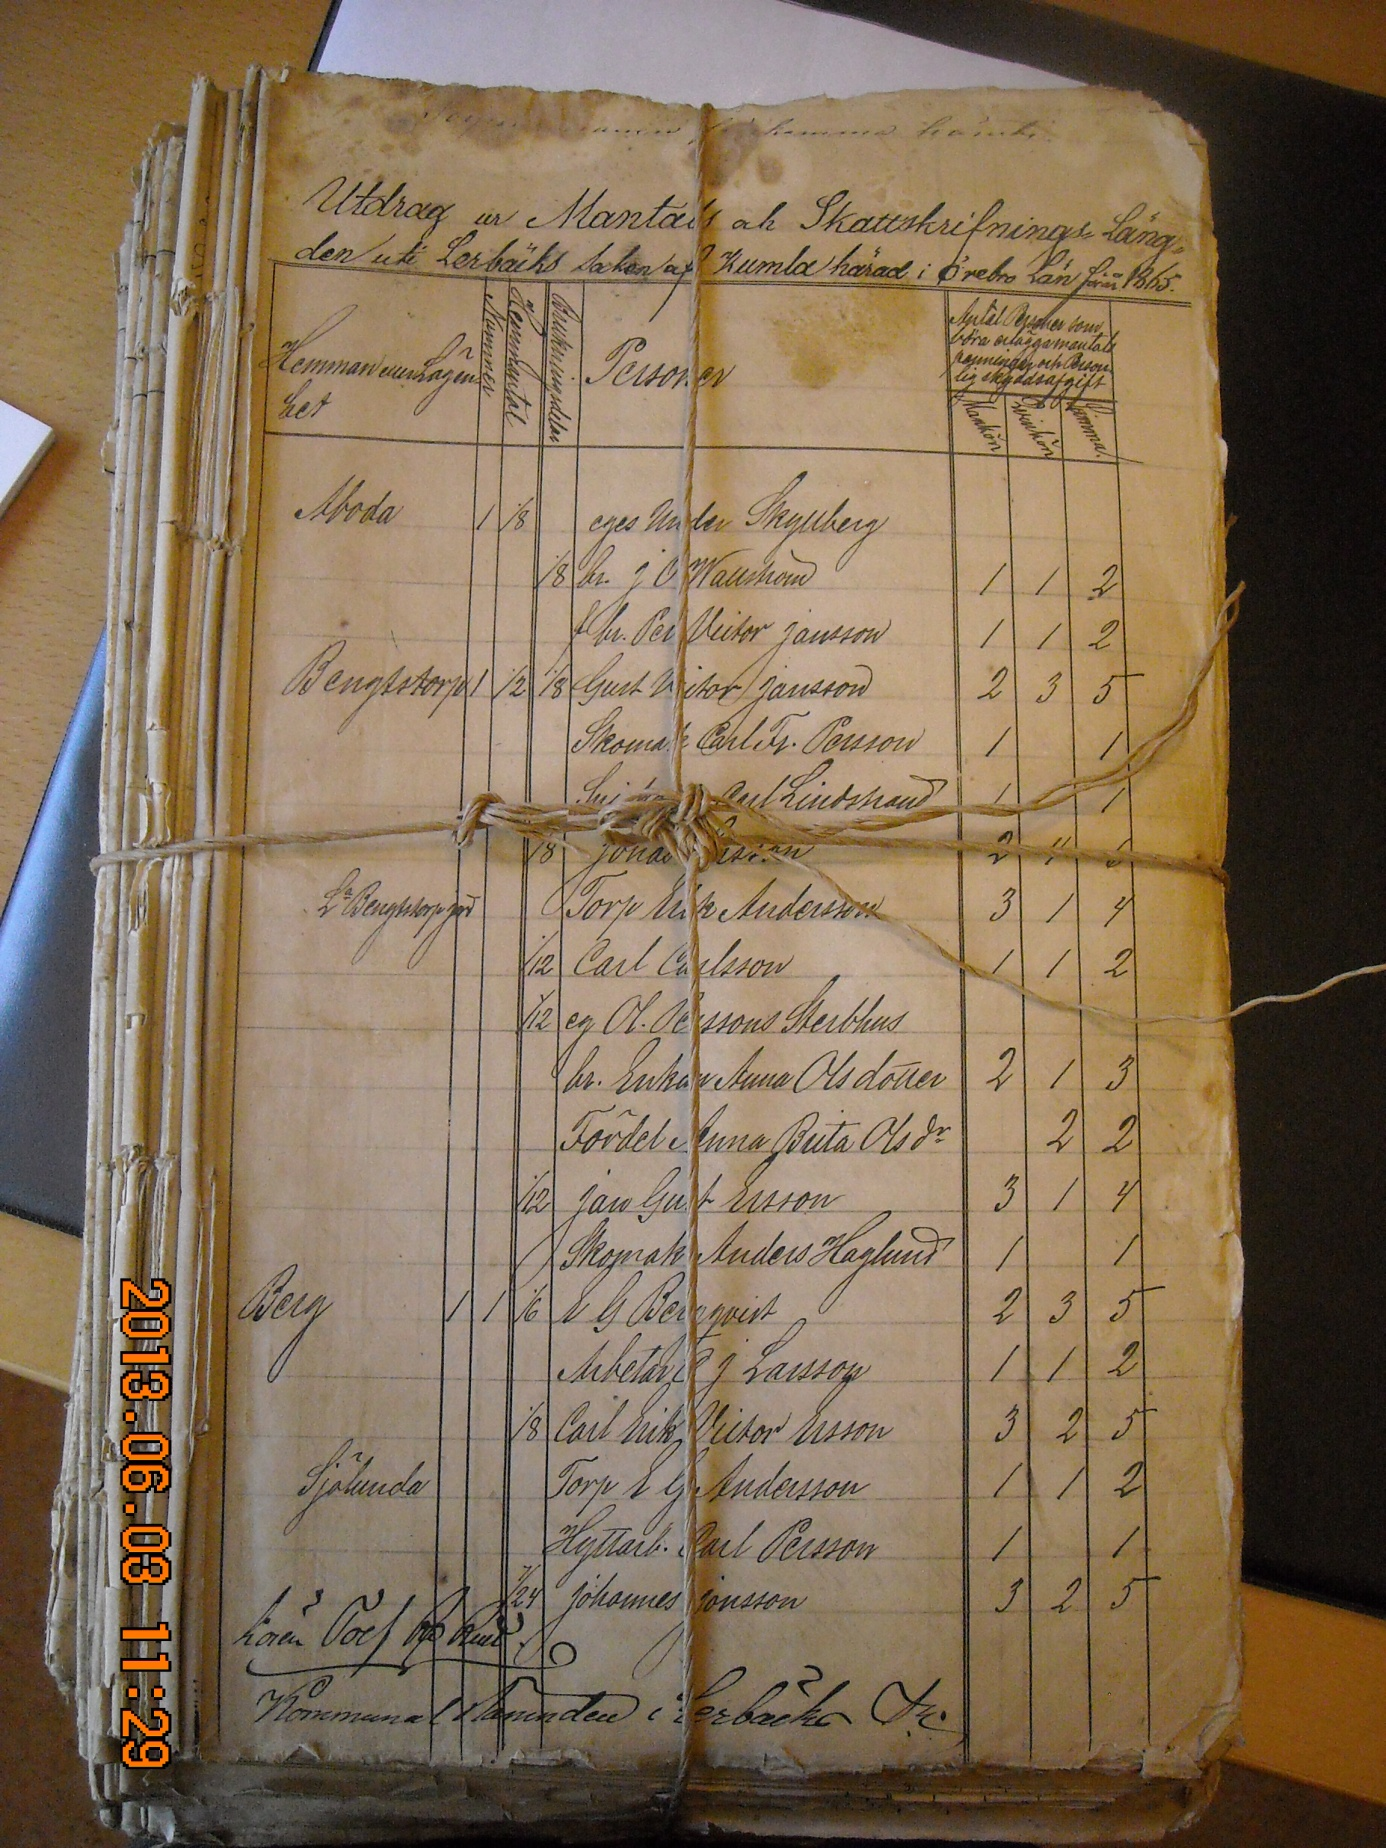 Utdrag ur Mantals och Skattskrifnings-Läng-
den uti Lerbäcks Socken af Kumla härad i Örebro Län för år 1865.
Hemman eller Lägen
het
Nummer
Hemmantal
Brukningsdelar
Personer
Antal Personer som
böra erlägga mantals
penningar och Person
lig skyddsafgift
Mankön
Qvinkön
Summa.
Aboda 1 1/8 eges Under Skyllberg
1/8 br. J O Wallström 1 1 2
f br. Per Victor Jansson 1 1 2
Bengtstorp 1 1/2 1/8 Gust Victor Jansson 2 3 5
Skomak Carl Fr. Persson 1 1
Carl Lindstrand 1 1
1/8 2 4
La Bengtstorp Torp Erik Andersson 3 1 4
1/12 Carl Carlsson 1 1 2
1/12 eg Ol. Perssons Sterbhus
br. Enkan Anna Olsdotter 2 1 3
Fördel Anna Brita Olsdr 2 2
1/12 Jan Gust Ersson 3 1 4
Skomak Anders Haglund 1 1
Berg 1 1 1/6 E G Bergqvist 2 3 5
Arbetar J Larsson 1 1 2
1/8 Carl Erik Victor Ersson 3 2 5
Sjölunda Torp E G Andersson 1 1 2
Hyttarb. Carl Persson 1 1
1/24 Johannes Jonsson 3 2 5
Kommunal Nämnden i Lerbäck
2013.06.03 11:29